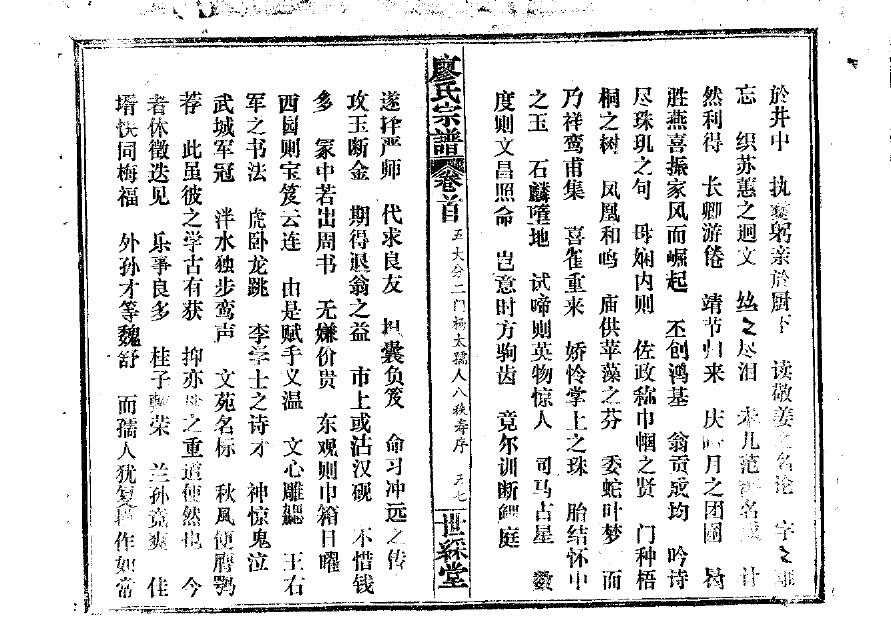 於井中 执爨躬亲於厨下 读敬姜之名论 字之
忘 织苏蕙之迴文 丝之尽泪 未几范 名 计
然利得 长卿游倦 靖节归来 庆 月之团圆
胜燕喜振家风而崛起 丕创鸿基 翁贡成均 吟诗
尽珠玑之句 母娴内则 佐政称巾帼之贤 门种梧
桐之树 凤凰和鸣 庙供苹藻之芬 委蛇叶梦 而
乃祥鸾甫集 喜雀重来 娇怜掌上之珠 胎结怀中
之玉 石麟墮地 试啼则英物惊人 司马占星 数
度则文昌照命 岂意时方驹齿 竟尔训断鲤庭
廖氏宗谱 卷首 五大分二门杨太孺人八秩寿序 五七 世綵堂
遂择严师 代求良友 担囊负笈 命习冲远之传
攻玉断金 期得退翁之益 市上或沽汉砚 不惜钱
多 冢中若出周书 无嫌价贵 东观则巾箱日曜
西园则宝笈云连 由是赋手义温 文心雕龙 王右
军之书法 虎卧龙跳 李学士之诗才 神惊鬼泣
武城军冠 泮水独步鸾声 文苑名标 秋風便膺鹗
荐 此虽彼之学古有获 抑亦 之重道使然也 今
者休徵迭见 乐事良多 桂子 荣 兰孙竞爽 佳
壻快同梅福 外孙才等魏舒 而孺人犹 作如常